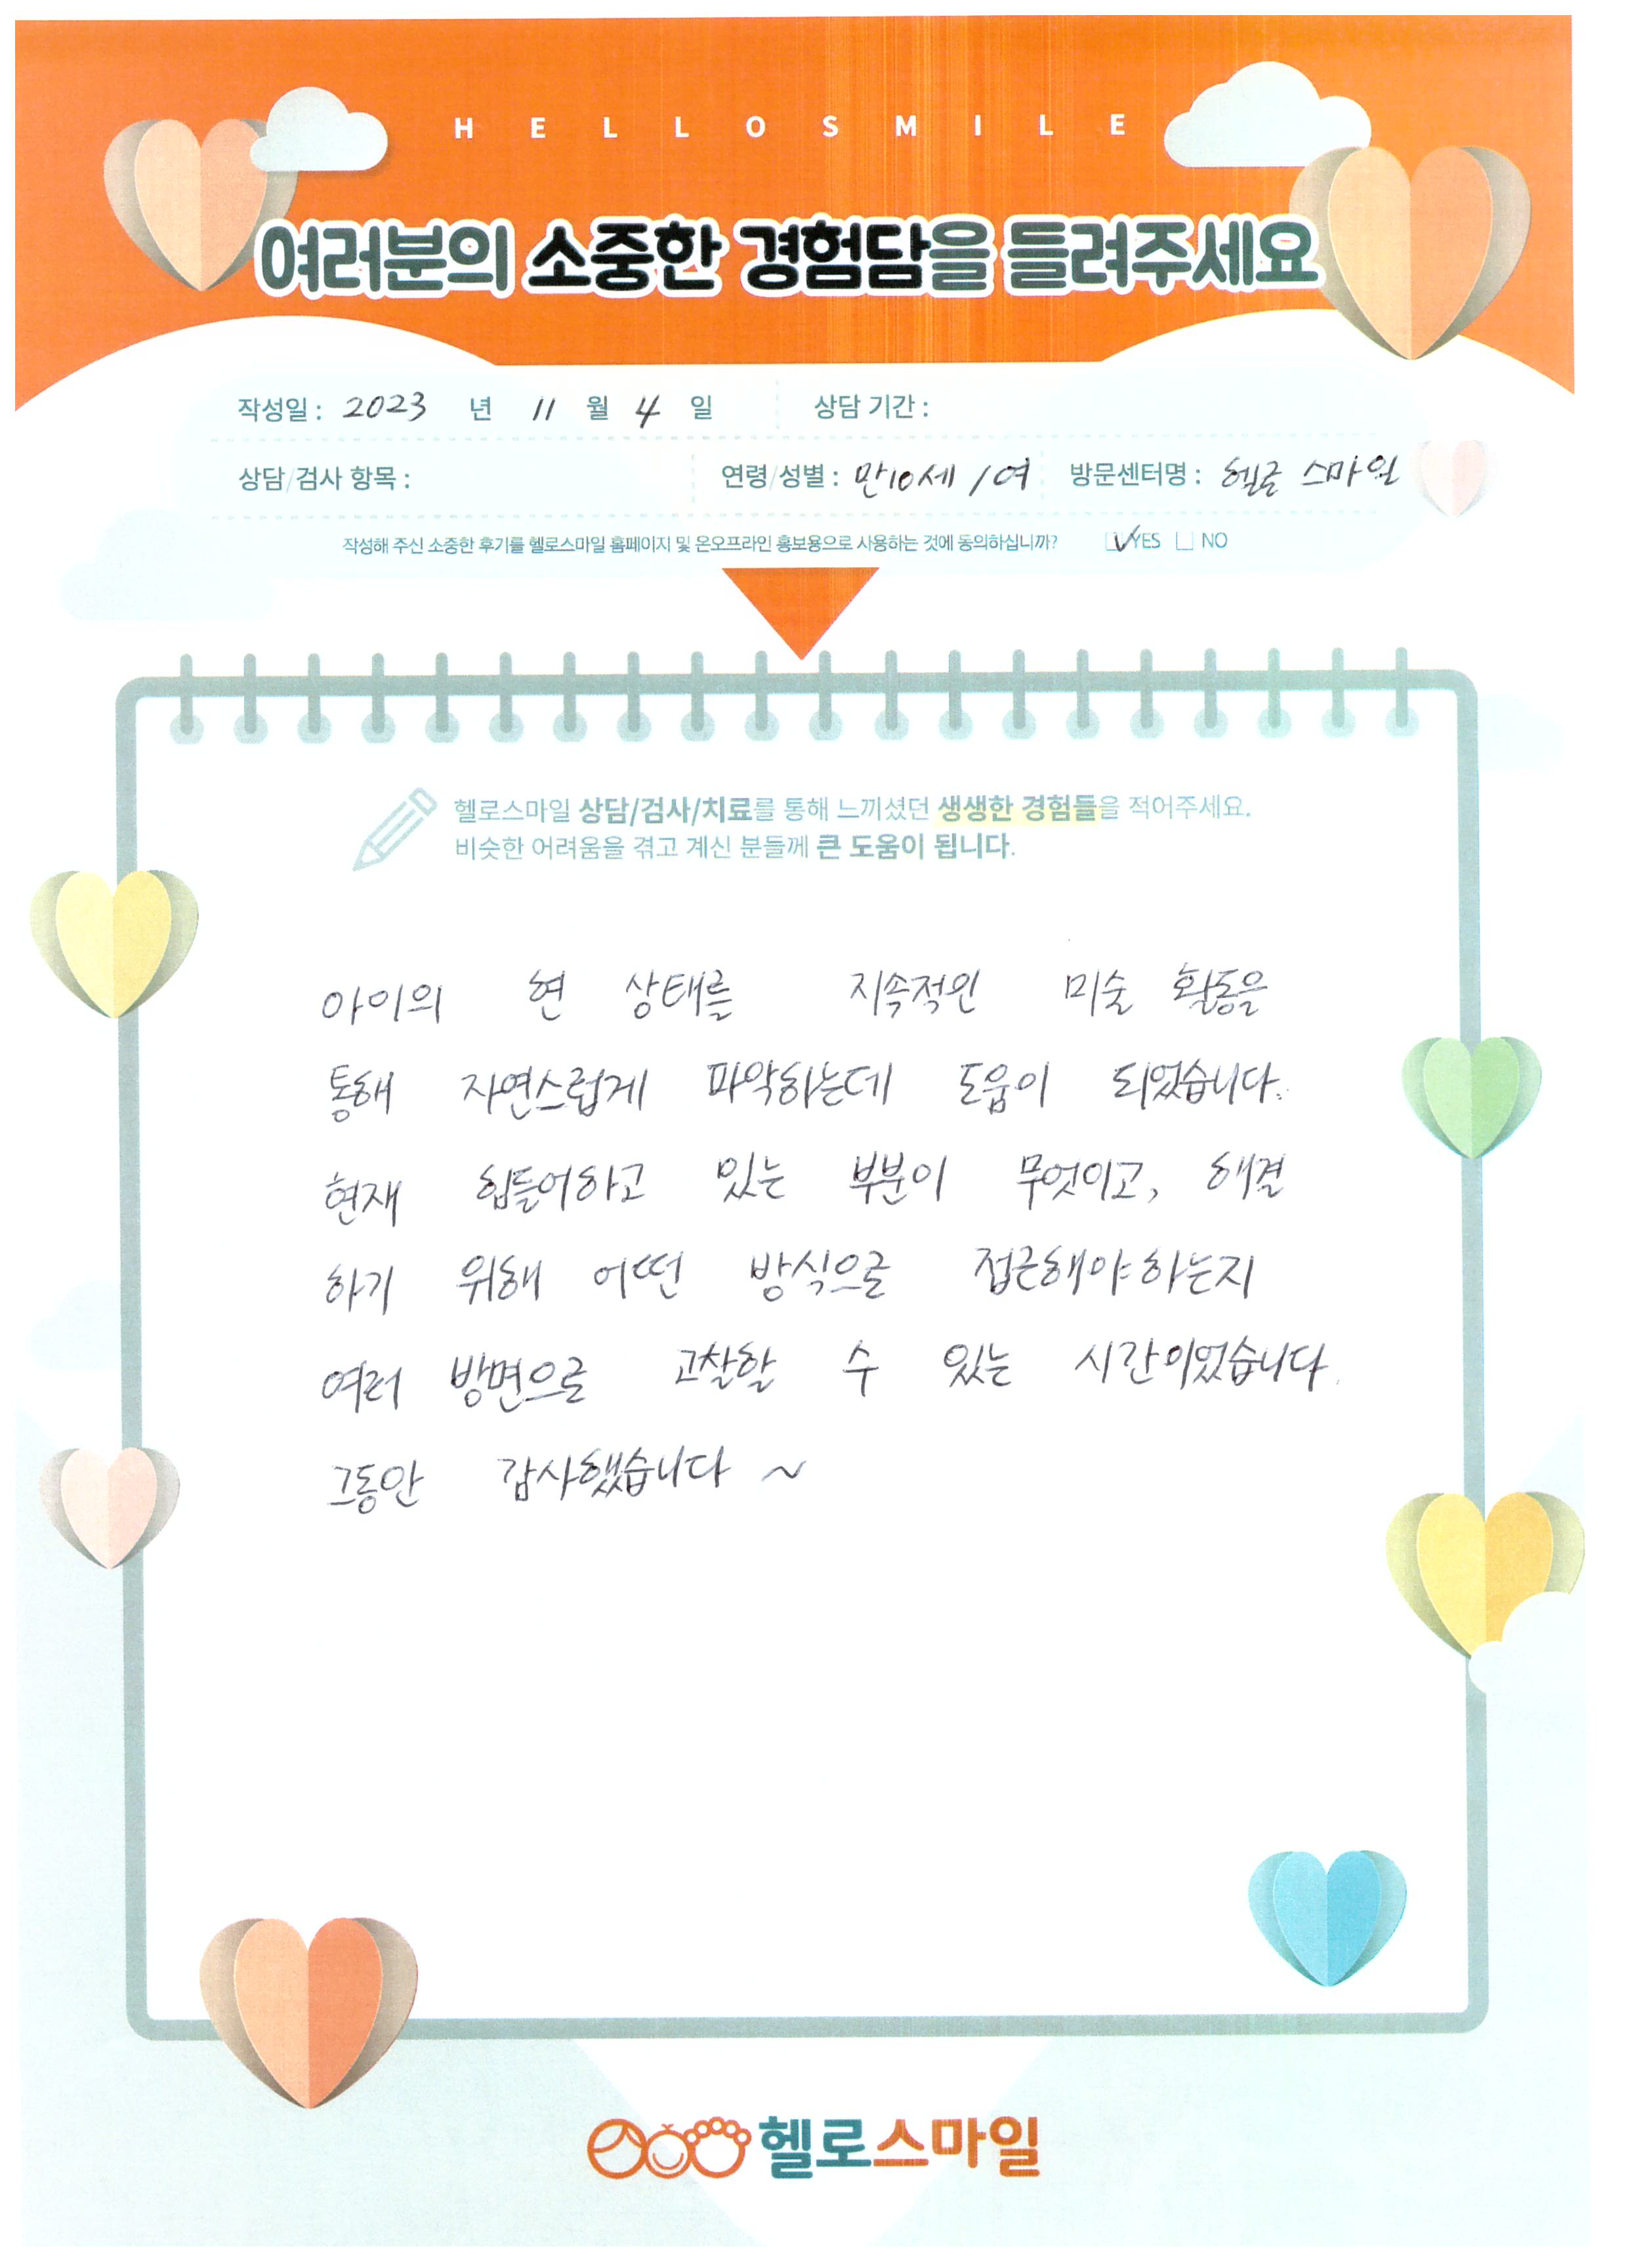 HELLOSMILE
여러분의 소중한 경험담을 들려주세요
작성일 : 2023 년 11 월 4 일 상담 기간 :
상담/검사 항목 : 연령/성별 : 만10세 / 여 방문센터명 : 헬로 스마일
작성해 주신 소중한 후기를 헬로스마일 홈페이지 및 온오프라인 홍보용으로 사용하는 것에 동의하십니까? ☑YES ☐ NO
헬로스마일 상담/검사/치료를 통해 느끼셨던 생생한 경험들을 적어주세요.
비슷한 어려움을 겪고 계신 분들께 큰 도움이 됩니다.
아이의 현 상태를 지속적인 미술 활동을
통해 자연스럽게 파악하는데 도움이 되었습니다.
현재 힘들어하고 있는 부분이 무엇이고, 해결
하기 위해 어떤 방식으로 접근해야하는지
여러 방면으로 고찰할 수 있는 시간이었습니다.
그동안 감사했습니다 ~
헬로스마일